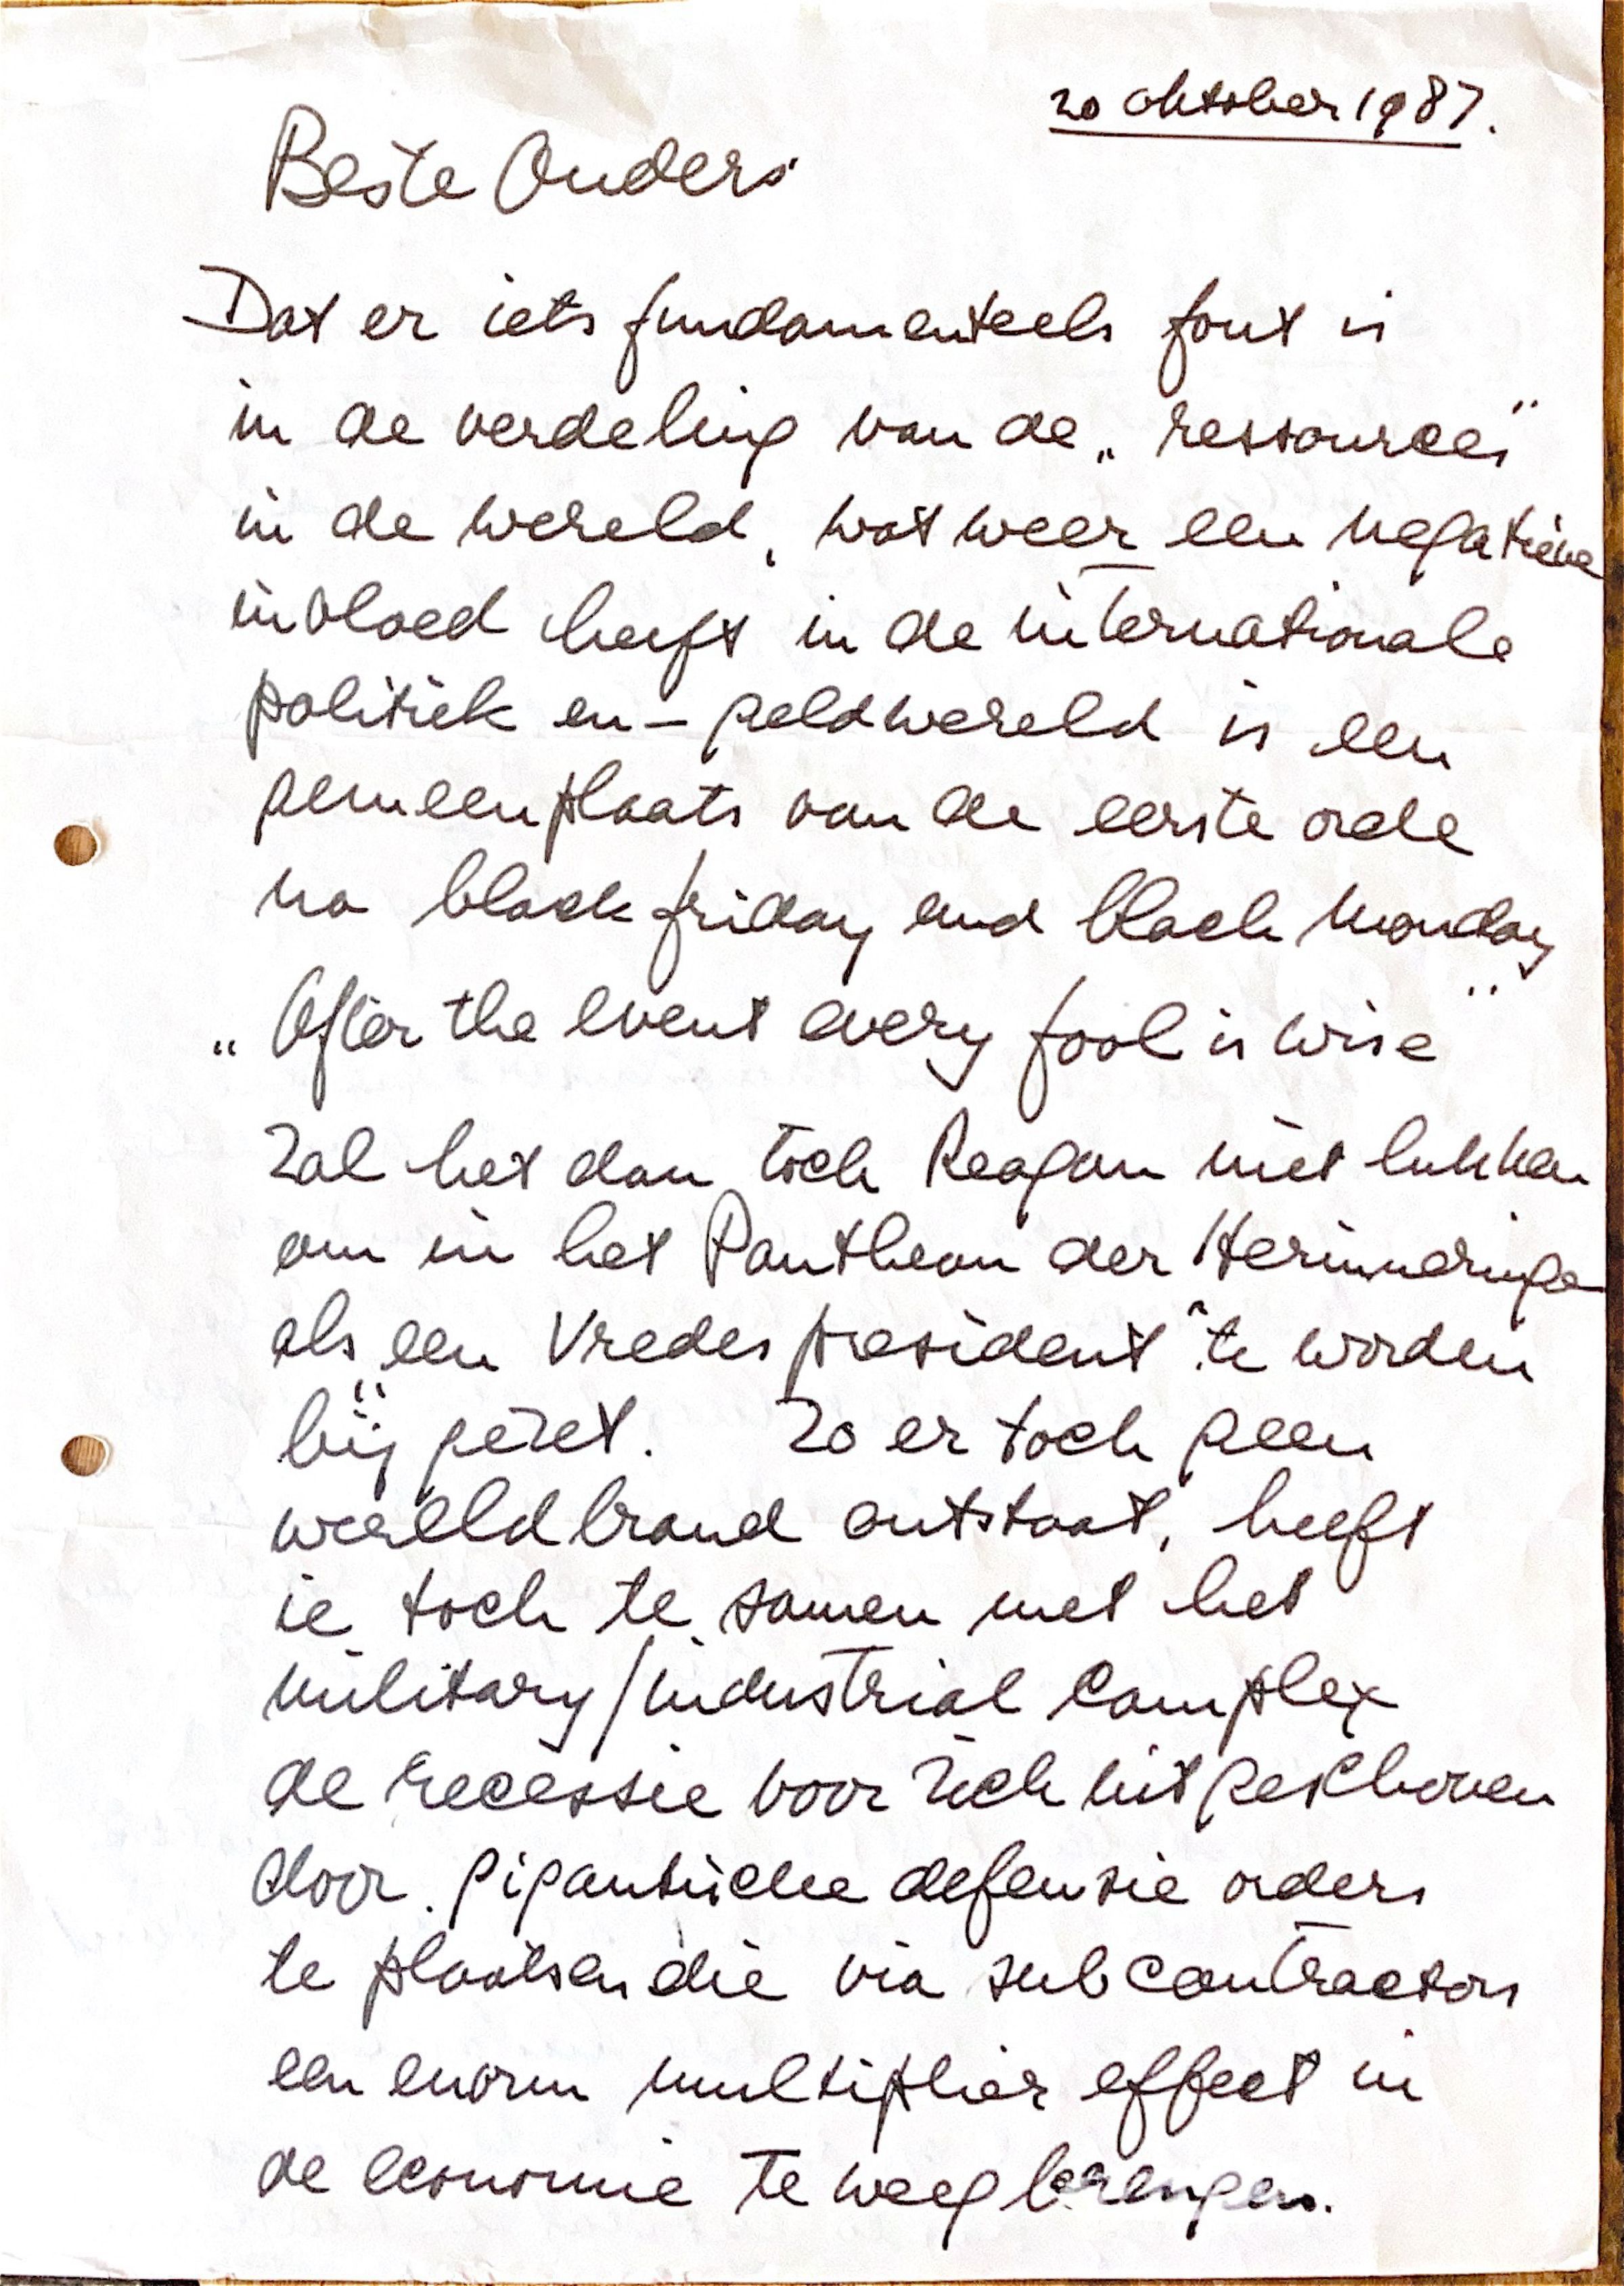 20 oktober 1987.
Beste Ouders
Dat er iets fundamenteels fout is
in de verdeling van de „ressources"
in de wereld, wat weer een negatieve
invloed heeft in de internationale
politiek en - geldwereld is een
gemeenplaats van de eerste orde
na black friday and black monday
„After the event every fool is wise"
Zal het dan toch Reagan niet lukken
om in het Pantheon der Herinneringen
als „een Vredes president" te worden
bijgezet. Zo er toch geen
wereldbrand ontstaat, heeft
ie toch te samen met het
military/industrial complex
de recessie voor zich uit geschoven
door gigantische defensie orders
te plaatsen die via subcontractors
een enorm multiplier effect in
de economie te weeg brengen.